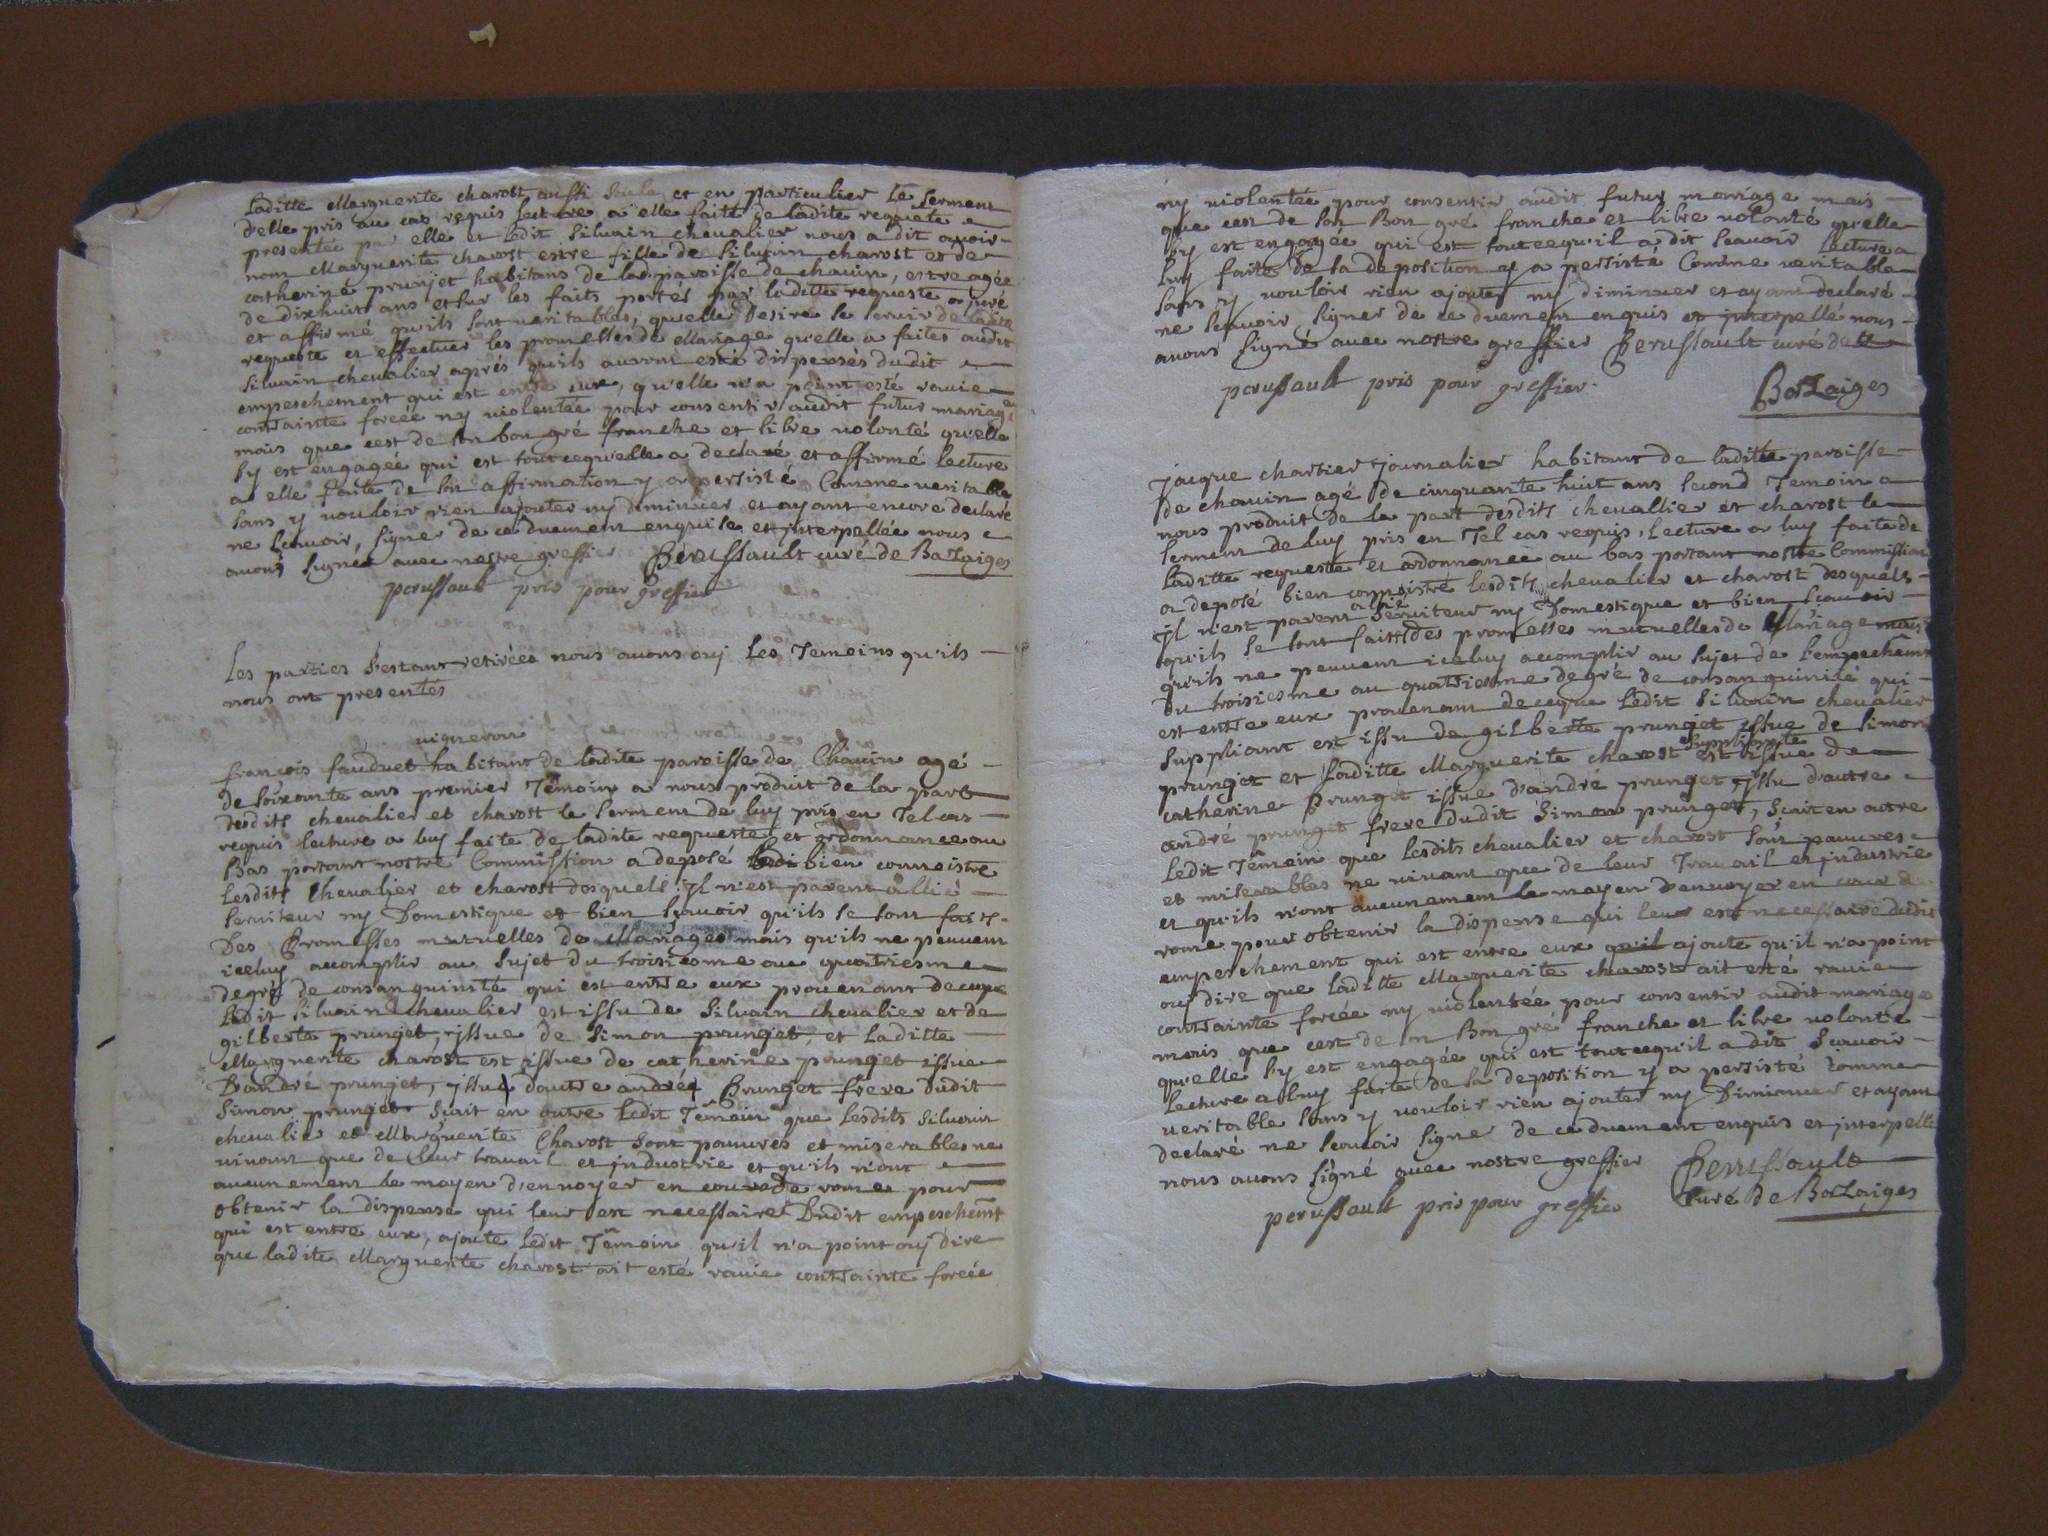 Laditte Marguerite charost aussi seule et en particulier Le serment
d'elle pris au cas requis lecture a elle faitte de ladite requete
presentée par elle et Ledit Silvain chevalier nous a dit avoir
nom Marguerite charost estre fille de Silvain charost et de
catherine prunjet habitans de lad. paroisse de chavin, estre agée
de dixhuit ans et sur les faits portés par laditte requeste a juré
et affirmé qu'ils sont veritables, qu'elle desire se servir de ladite
requeste et effectuer les promesses de Mariage qu'elle a faites audit
Silvain chevalier aprés qu'ils auront esté dispensés dudit
empeschement qui est entre eux, qu'elle n'a point esté ravie
contrainte forcée ny violentée pour consentir audit futur mariage
mais que c'est de son bon gré franche et libre volonté qu'elle
s'y est engagée qui est tout ce qu'elle a declaré et affirmé lecture
a elle faite de son affirmation y a persisté Comme veritable
sans y vouloir rien ajouter ny diminuer et ayant encore declaré
ne scavoir signer de ce duement enquise et interpellée nous
avons signé avec nostre greffier Perussault curé de Bazaiges
perussault pris pour greffier
Les parties s'estant retirées nous avons ouj Les Temoins qu'ils
nous ont presentés
vigneron
francois fauduet habitant de ladite paroisse de Chavin agé
de soixante ans premier Témoin a nous produit de la part
desdits chevalier et charost le serment de luy pris en Tel cas
requis lecture a luy faite de ladite requeste et ordonnance au
Bas portant nostre Commission a deposé bien connoistre
Lesdits Chevalier et charost desquels Il n'est parent allié
serviteur ny Domestique et bien scavoir qu'ils se sont faits
Des Promesses mutuelles de Mariage mais qu'ils ne peuvent
iceluy accomplir au sujet du troisiesme au quatriesme
degré de consanguinité qui est entre eux provenant de ceque
Ledit Silvain chevalier est issu de Silvain chevalier et de
gilberte prunjet, issue de Simon prunjet, et Laditte
Marguerite charost est issue de catherine prunjet issue
D'andré prunjet, issu d'autre andré Prunjet frere dudit
Simon prunjet Sçait en outre Ledit Témoin que Lesdits Silvain
chevalier et Marguerite Charost sont pauvres et miserables ne
vivant que de Leur travail et industrie et qu'ils n'ont
aucunement le moyen d'envoyer en cour de rome pour
obtenir la dispense qui leur est necessaire Dudit empeschemt
qui est entre eux, ajoute Ledit Témoin qu'il n'a point ouj dire
que ladite Marguerite charost ait esté ravie contrainte forcée
ny violentée pour consentir audit futur mariage mais
que c'est de son Bon gré franche et libre volonté qu'elle
s'y est engagée qui est tout cequ'il a dit scavoir lecture a
luy faite de sa deposition y a persisté Comme veritable
sans y vouloir rien ajouter ny diminuer et ayant declaré
ne scavoir signer de ce duement enquis et interpellé nous
avons signé avec nostre greffier Perussault curé de
perussault pris pour greffier
Bazaiges
jacque chartier journalier habitant de laditte paroisse
de chavin agé de cinquante huit ans second Temoin a
nous produit de la part desdits chevallier et charost le
serment de luy pris en Tel cas requis, Lecture a luy faite de
Laditte requeste et ordonnance au bas portant nostre Commission
a deposé bien connoistre lesdits chevalier et charost desquels
allié
Il n'est parent serviteur ny Domestique et bien scavoir
qu'ils se sont faits des promesses mutuelles de Mariage mais
qu'ils ne peuvent iceluy accomplir au sujet de l'empeschemt
du troisiesme au quatriesme degré de consanguinité qui
est entre eux provenant de ceque Ledit Silvain chevalier
suppliant est issu de gilberte prunjet issue de Simon
suppliante
prunget et Laditte Marguerite charost est issue de
catherine Prunget issue d'andré prunget, issu d'autre
andré prunget frere dudit Simon prunget, Scait en outre
Ledit Témoin que Lesdits chevalier et charost sont pauvres
et miserables ne vivant que de leur Travail et industrie
et qu'ils n'ont aucunement le moyen d'envoyer en cour de
rome pour obtenir la dispense qui leur est necessaire dudit
empeschement qui est entre eux ajoute qu'il n'a point
ouj dire que Laditte Marguerite charost ait esté ravie
contrainte forcée ny violentée pour consentir audit mariage
mais que c'est de son Bon gré franche et libre volonté
qu'elle s'y est engagée qui est tout cequ'il a dit scavoir
Lecture a luy faite de sa deposition y a persisté Comme
veritable sans y vouloir rien ajouter ny Diminuer et ayant
declaré ne scavoir signer de ce duement enquis et interpellé
nous avons signé avec nostre greffier Perussault
perussault pris pour greffier Curé de Bazaiges